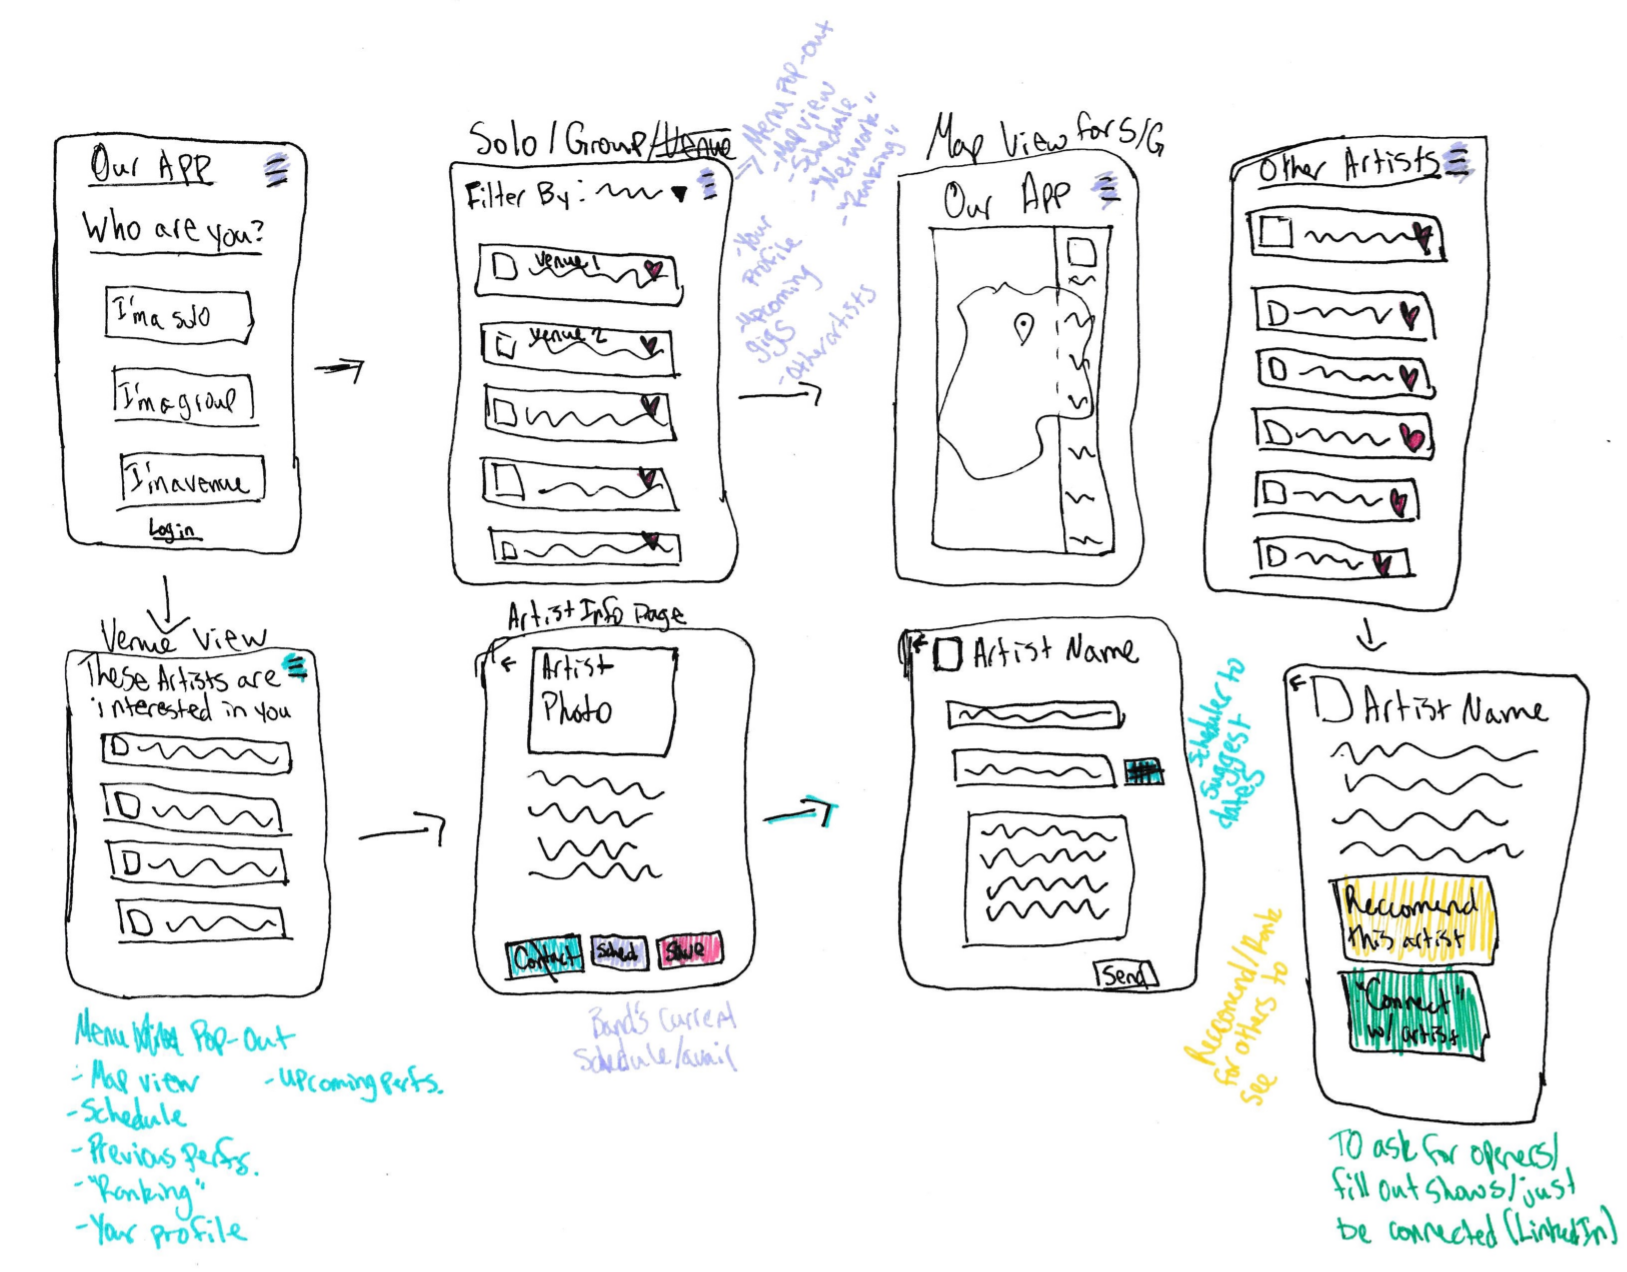 Our App
Who are you?
I'm a solo
I'm a group
I'm a venue
Login
Solo/Group/Venue
Filter By:
venue 1
venue 2
→ Menu Pop-out
- Map view
- Schedule
- "Network"
- "Ranking"
- Your
profile
- Upcoming
gigs
- Other artists
Map View for S/G
Our App
Other Artists
Venue View
These Artists are
interested in you
Menu Pop-Out
- Map view
- Schedule
- Previous perfs.
- "Ranking"
- Your profile
- Upcoming perfs.
Artist Info Page
Artist
Photo
Contact
Sched
Band's Current
Schedule/avail
Artist Name
Send
Scheduler to
suggest
dates
Artist Name
Reccomend
this artist
"Connect"
w/ artist
Reccomend/Rank
for others to
see
To ask for openers/
fill out shows/just
be connected (LinkedIn)